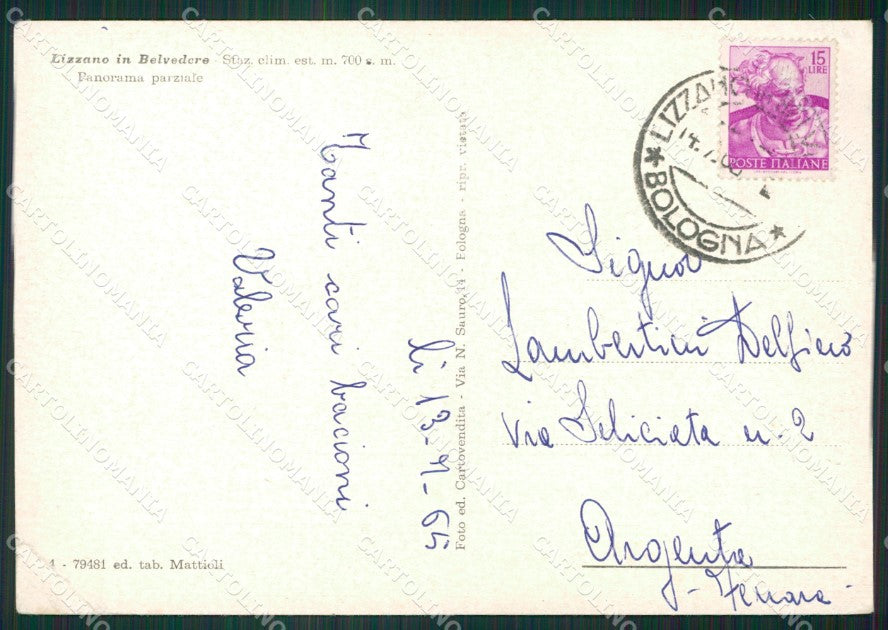 Lizzano in Belvedere - Staz. clim. est. m. 700 s. m.
Panorama parziale
15
LIRE
POSTE ITALIANE
LIZZANO
14.7.
★ BOLOGNA ★
Tanti cari bacioni
Valeria
li 13-7-65
Foto ed. Cartovendita - Via N. Sauro, 14 - Bologna - ripr. vietata
Signor
Lambertini Delfino
via Feliciata n. 2
Argenta
- Ferrara -
4 - 79481 ed. tab. Mattioli
CARTOLINOMANIA